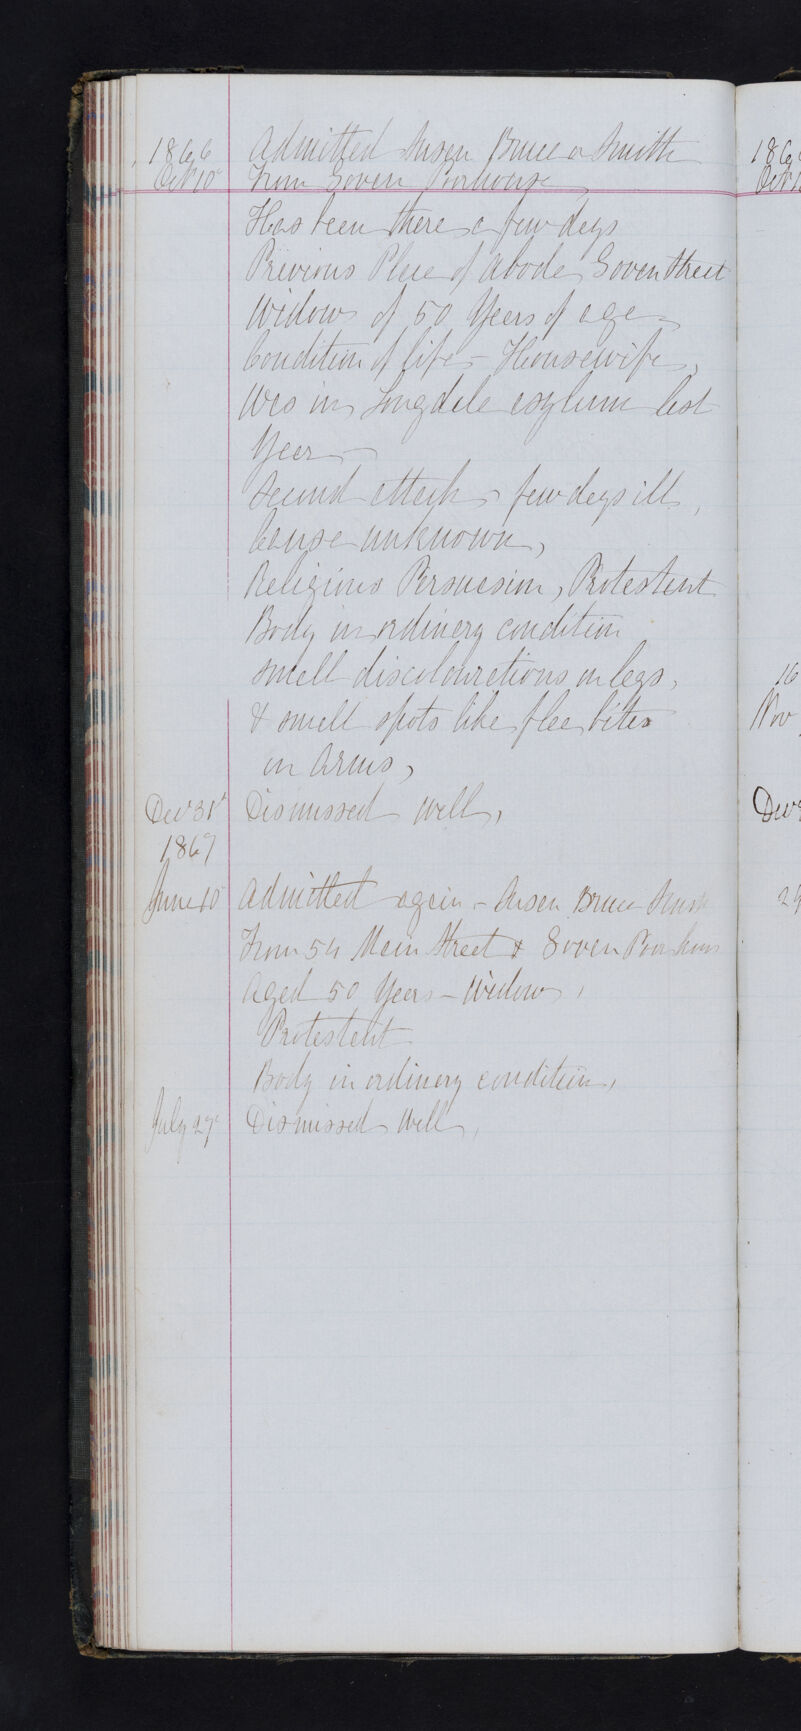 1866 Admitted Susan Bruce or Smith
Oct 10th From Govan Poorhouse
Has been there a few days
Previous Place of Abode, Govan Street
Widow of 50 Years of age
Condition of life - Housewife,
Was in Longdale asylum last
Year
Second attack - few days ill,
Cause unknown,
Religious Persuasion, Protestant
Body in ordinary condition
small discolourations on legs,
& small spots like flea bites
on Arms,
Decr 31st Dismissed well,
1867
June 10th Admitted again - Susan Bruce Smith
From 54 Main Street & Govan Poorhouse
Aged 50 Years - Widow,
Protestant
Body in ordinary condition,
July 27th Dismissed Well,
186
Oct
16
Nov
Decr